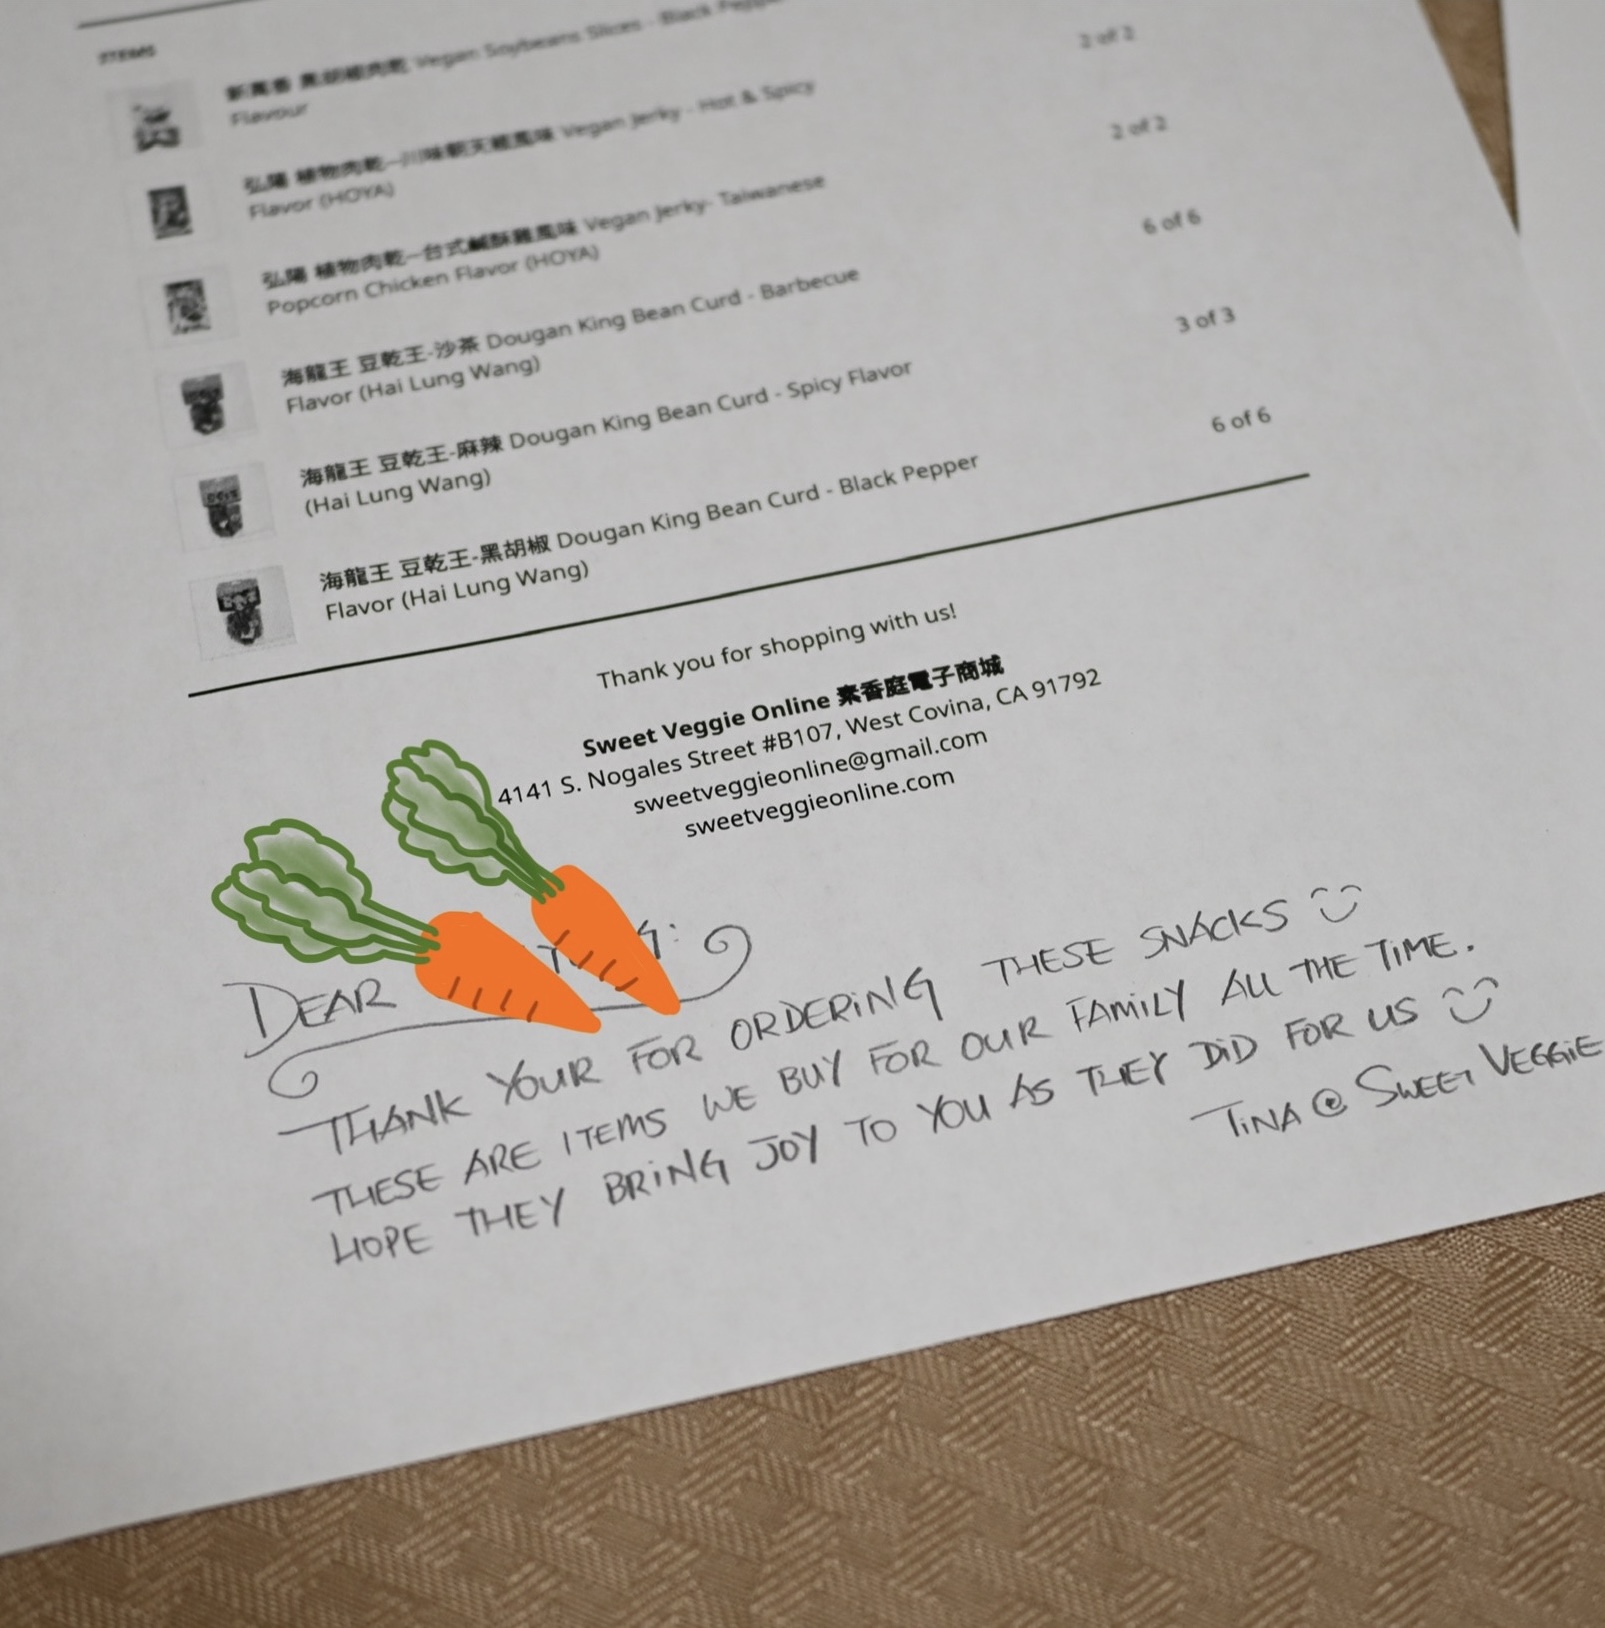 ITEMS
新萬香 黑胡椒肉乾 Vegan Soybeans Slices - Black Pepper
Flavour
2 of 2
弘陽 植物肉乾--川味朝天椒風味 Vegan Jerky - Hot & Spicy
Flavor (HOYA)
2 of 2
弘陽 植物肉乾--台式鹹酥雞風味 Vegan Jerky- Taiwanese
Popcorn Chicken Flavor (HOYA)
6 of 6
海龍王 豆乾王-沙茶 Dougan King Bean Curd - Barbecue
Flavor (Hai Lung Wang)
3 of 3
海龍王 豆乾王-麻辣 Dougan King Bean Curd - Spicy Flavor
(Hai Lung Wang)
6 of 6
海龍王 豆乾王-黑胡椒 Dougan King Bean Curd - Black Pepper
Flavor (Hai Lung Wang)
Thank you for shopping with us!
Sweet Veggie Online 素香庭電子商城
4141 S. Nogales Street #B107, West Covina, CA 91792
sweetveggieonline@gmail.com
sweetveggieonline.com
DEAR
THANK YOUR FOR ORDERING THESE SNACKS
THESE ARE ITEMS WE BUY FOR OUR FAMILY ALL THE TIME.
HOPE THEY BRING JOY TO YOU AS THEY DID FOR US
TINA @ SWEET VEGGIE